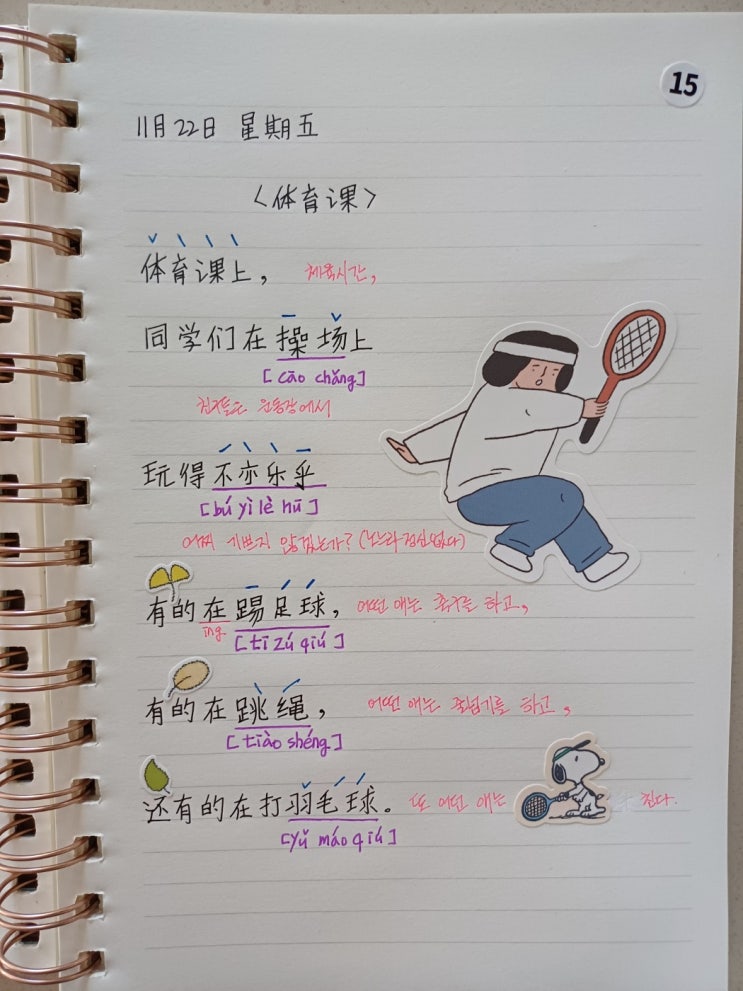 15
11月22日 星期五
〈体育课〉
体育课上, 체육시간,
同学们在操场上
[cāo chǎng]
친구들은 운동장에서
玩得不亦乐乎
[bú yì lè hū]
어찌 기쁘지 않겠는가? (노느라 정신없다)
有的在踢足球, 어떤 애는 축구를 하고,
ing
[tī zú qiú]
有的在跳绳, 어떤 애는 줄넘기를 하고,
[tiào shéng]
还有的在打羽毛球。 또 어떤 애는 친다.
[yǔ máo qiú]